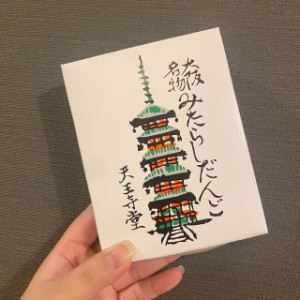 大阪
名物
みたらしだんご
天王寺堂